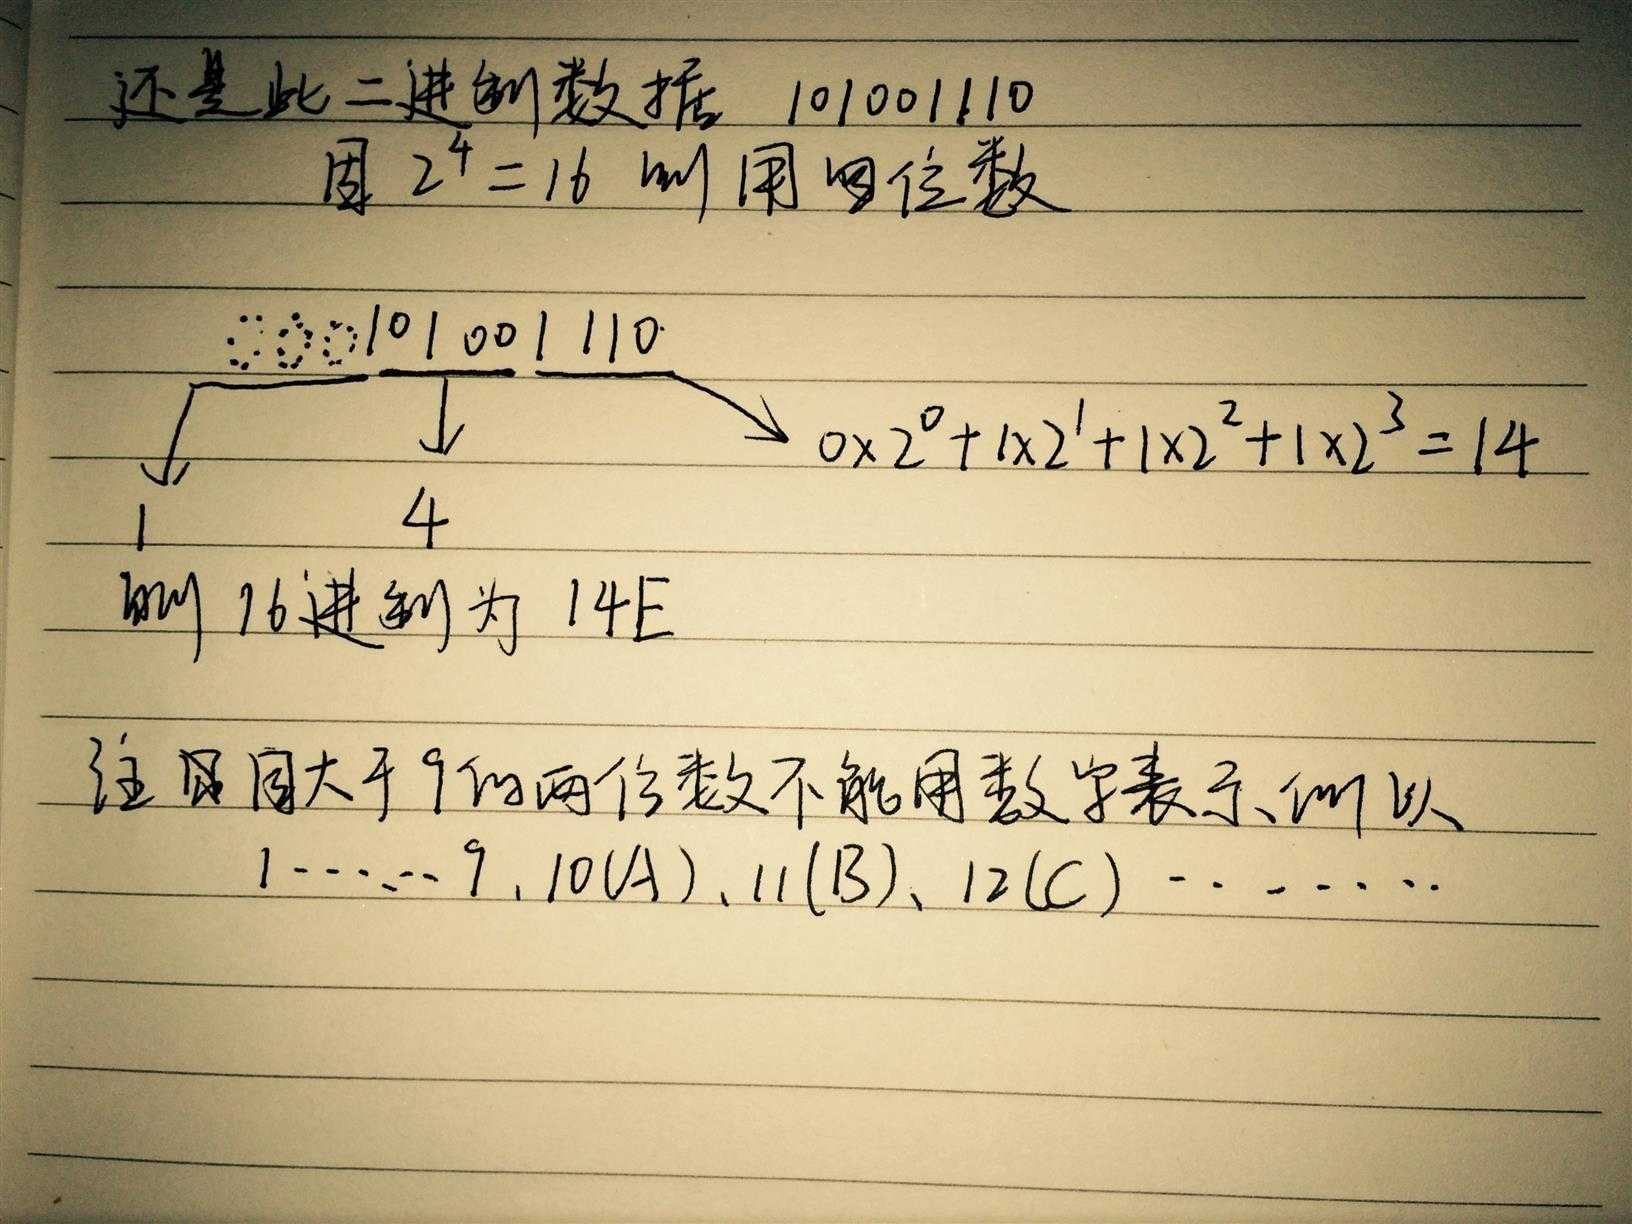 还是此二进制数据 101001110
因 2⁴=16 则用四位数
000101001110
0×2⁰+1×2¹+1×2²+1×2³=14
1 4
则 16进制为 14E
注 因大于9的两位数不能用数字表示、则以
1······9、10(A)、11(B)、12(C)········